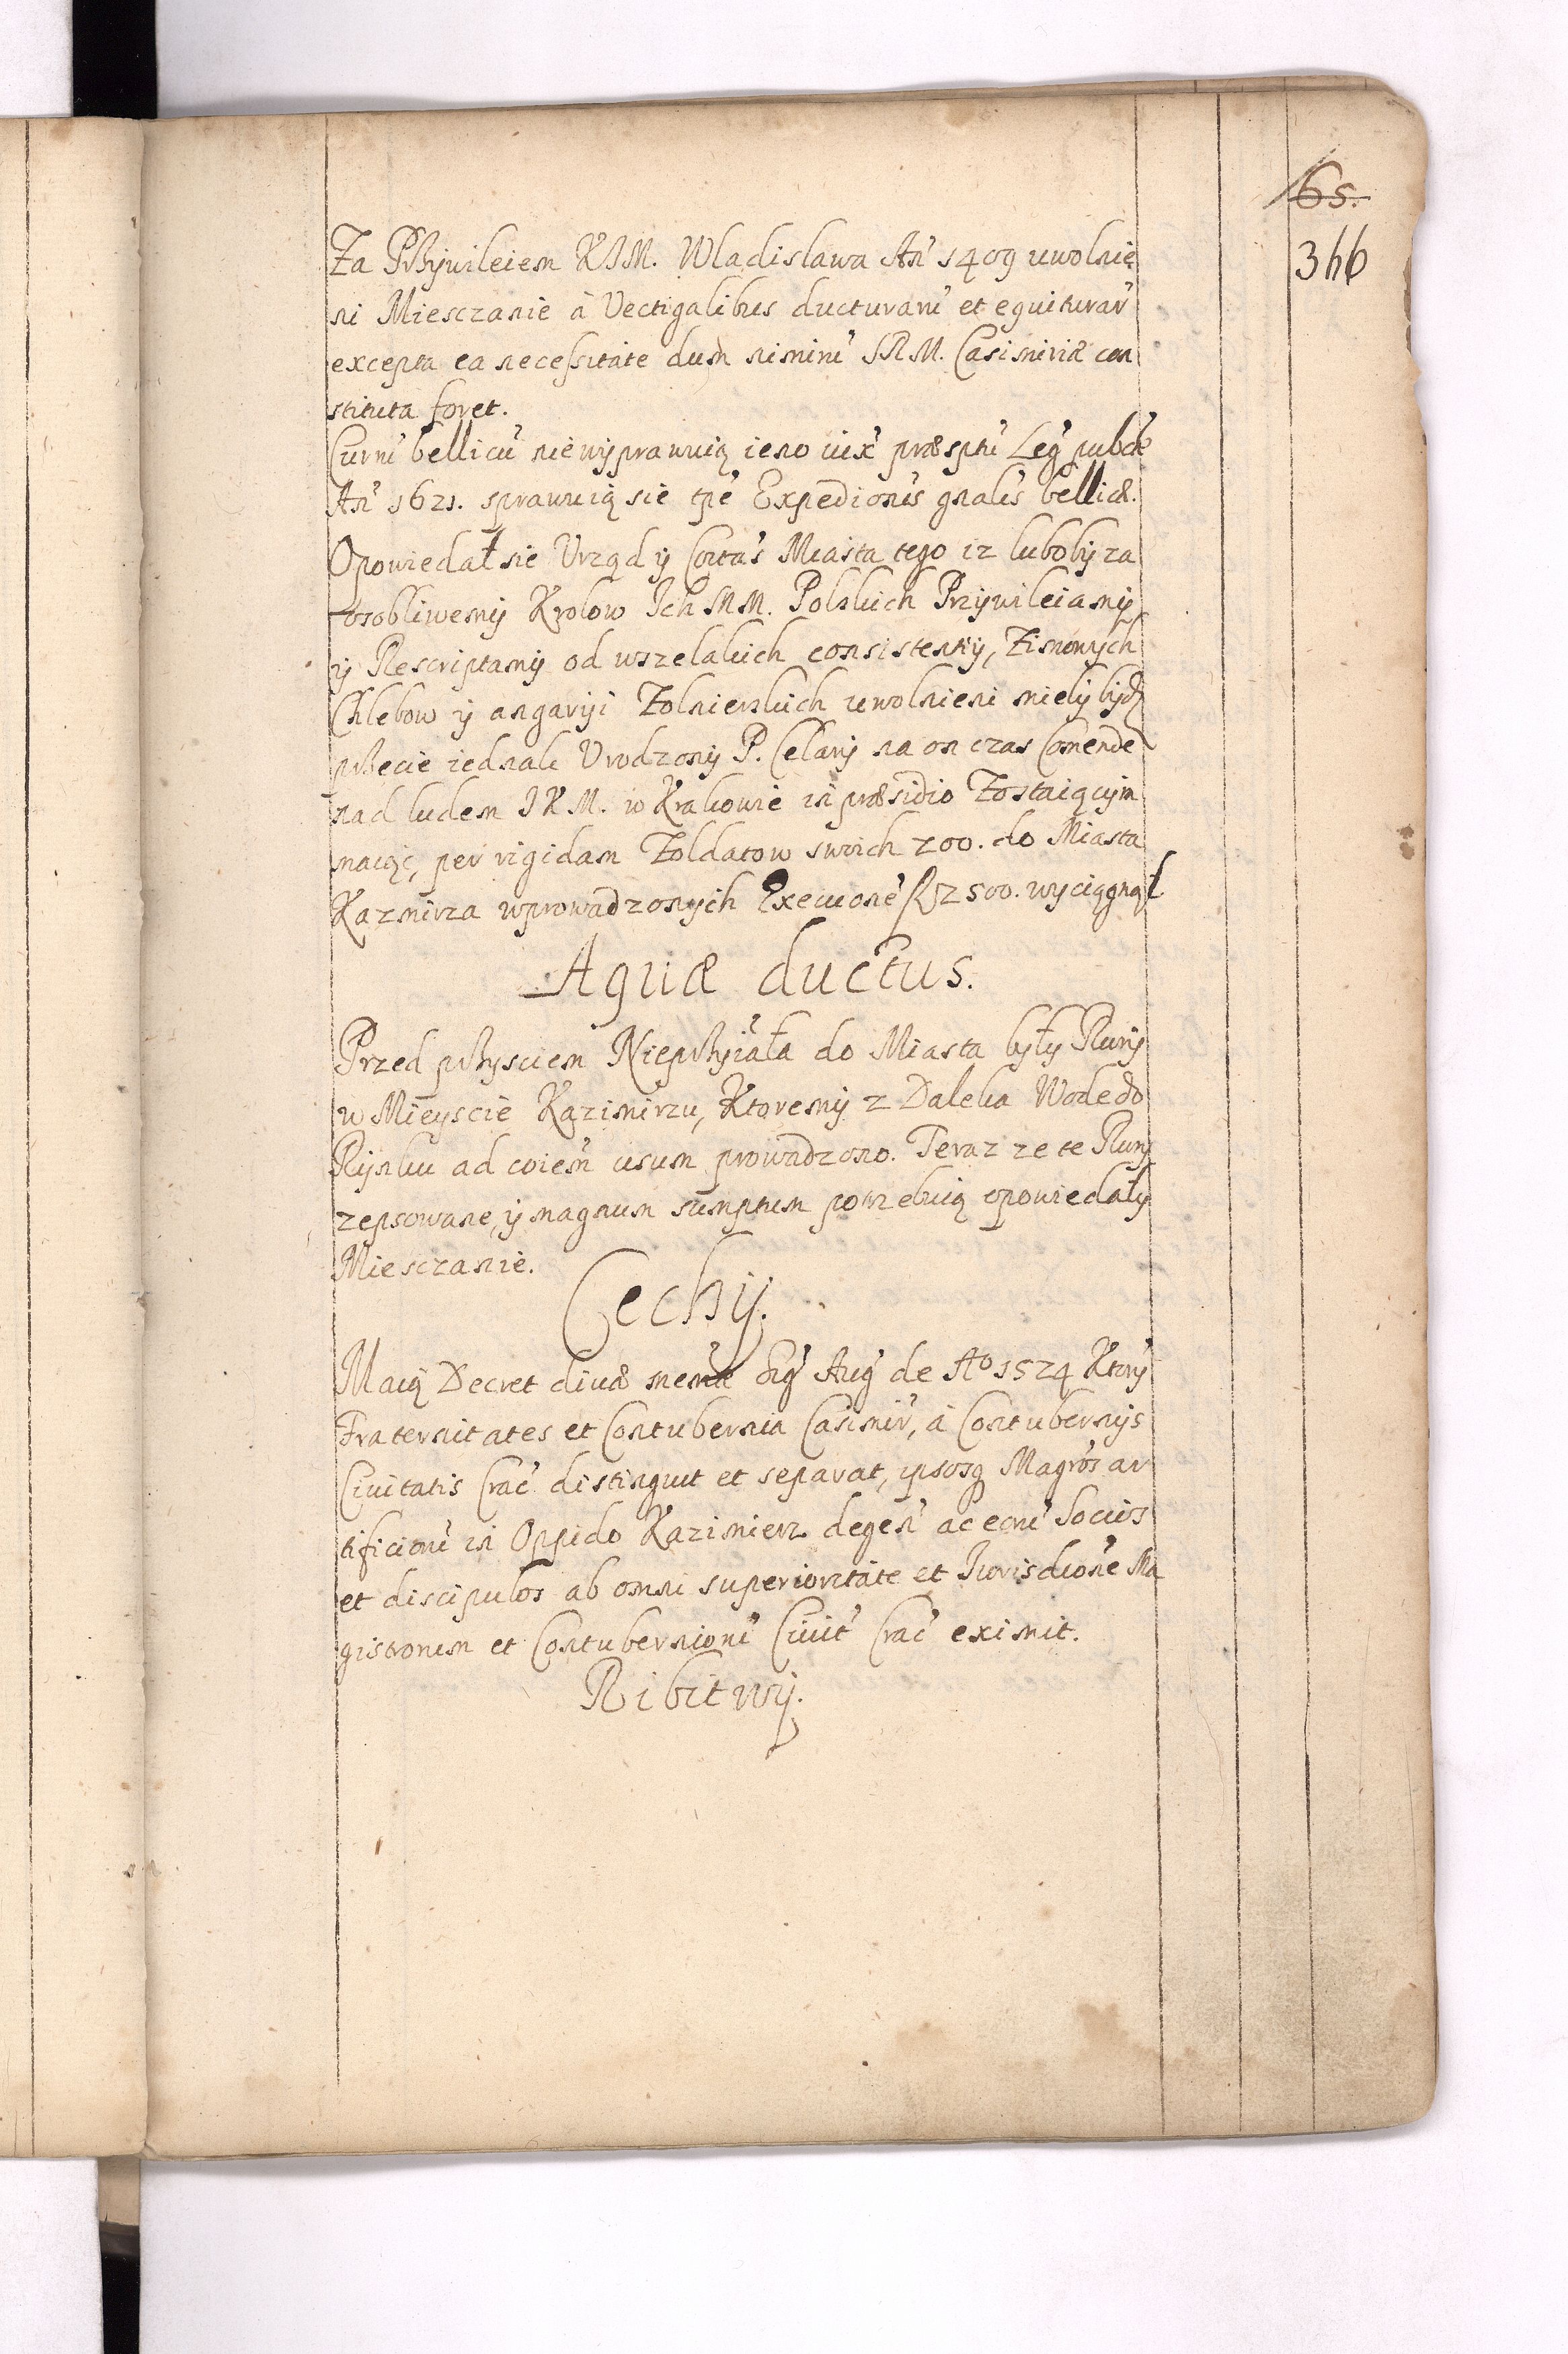 65.
366
Za Przÿwileiem KJM. Wladislawa An̄ 1409 uwolnie
ni Miesczanie à Vectigalibus ducturarū et equiturar̄
excepta ea necessitate dum nimirū SRM. Casimiriæ con
stituta foret.
Currū bellicū nie wÿprawuią ieno iux̄ præsptū Leḡ public̄
An̄ 1621. sprawuią sie tpē Expedionis gnalis bellicæ.
Opowiedał sie Vrząd ÿ Coitas Miasta tego iz lubobÿ za
osobliwemÿ Krolow Ich MM. Polskich Przÿwileiamÿ
ÿ Rescriptamÿ od wszelakich consistentÿ, Zimowÿch
Chlebow ÿ angarÿi Zolnierskich uwolnieni mielÿ bÿdź
przecie iednak Vrodzonÿ P. Celarÿ na on czas Comende
nad ludem JKM. w Krakowie in præsidio Zostaiącÿm
maiąc, per rigidam Zoldatow swoich 200. do Miasta
Kazmirza wprowadzonÿch Execuone 2500. wyciągnął
Aquæ ductus.
Przed przÿsciem Nieprzÿiała do Miasta bÿłÿ Rurÿ
w Mieÿscie Kazimirzu, Ktoremÿ z Daleka Wode do
Rÿnku ad coiem usum prowadzono. Teraz ze te Rurÿ
zepsowane, ÿ magnum sumptum potrzebuią opowiedałÿ
Miesczanie.
Cechÿ.
Maią Decret divæ mem̄ Sig̅ Aug̅ de Aº 1524 Ktorÿ
Fraternitates et Contubernia Casimir̄, à Contubernÿs
Civitatis Crac̄ distinguit et separat, ipsosq Magrōs ar
tificiorū in Oppido Kazimierz degen̄ ac eorū Socios
et discipulos ab omni superioritate et Jurisdione Ma
gistrorum et Contuberniorū Civit̄ Crac̄ eximit.
Ribitwÿ.